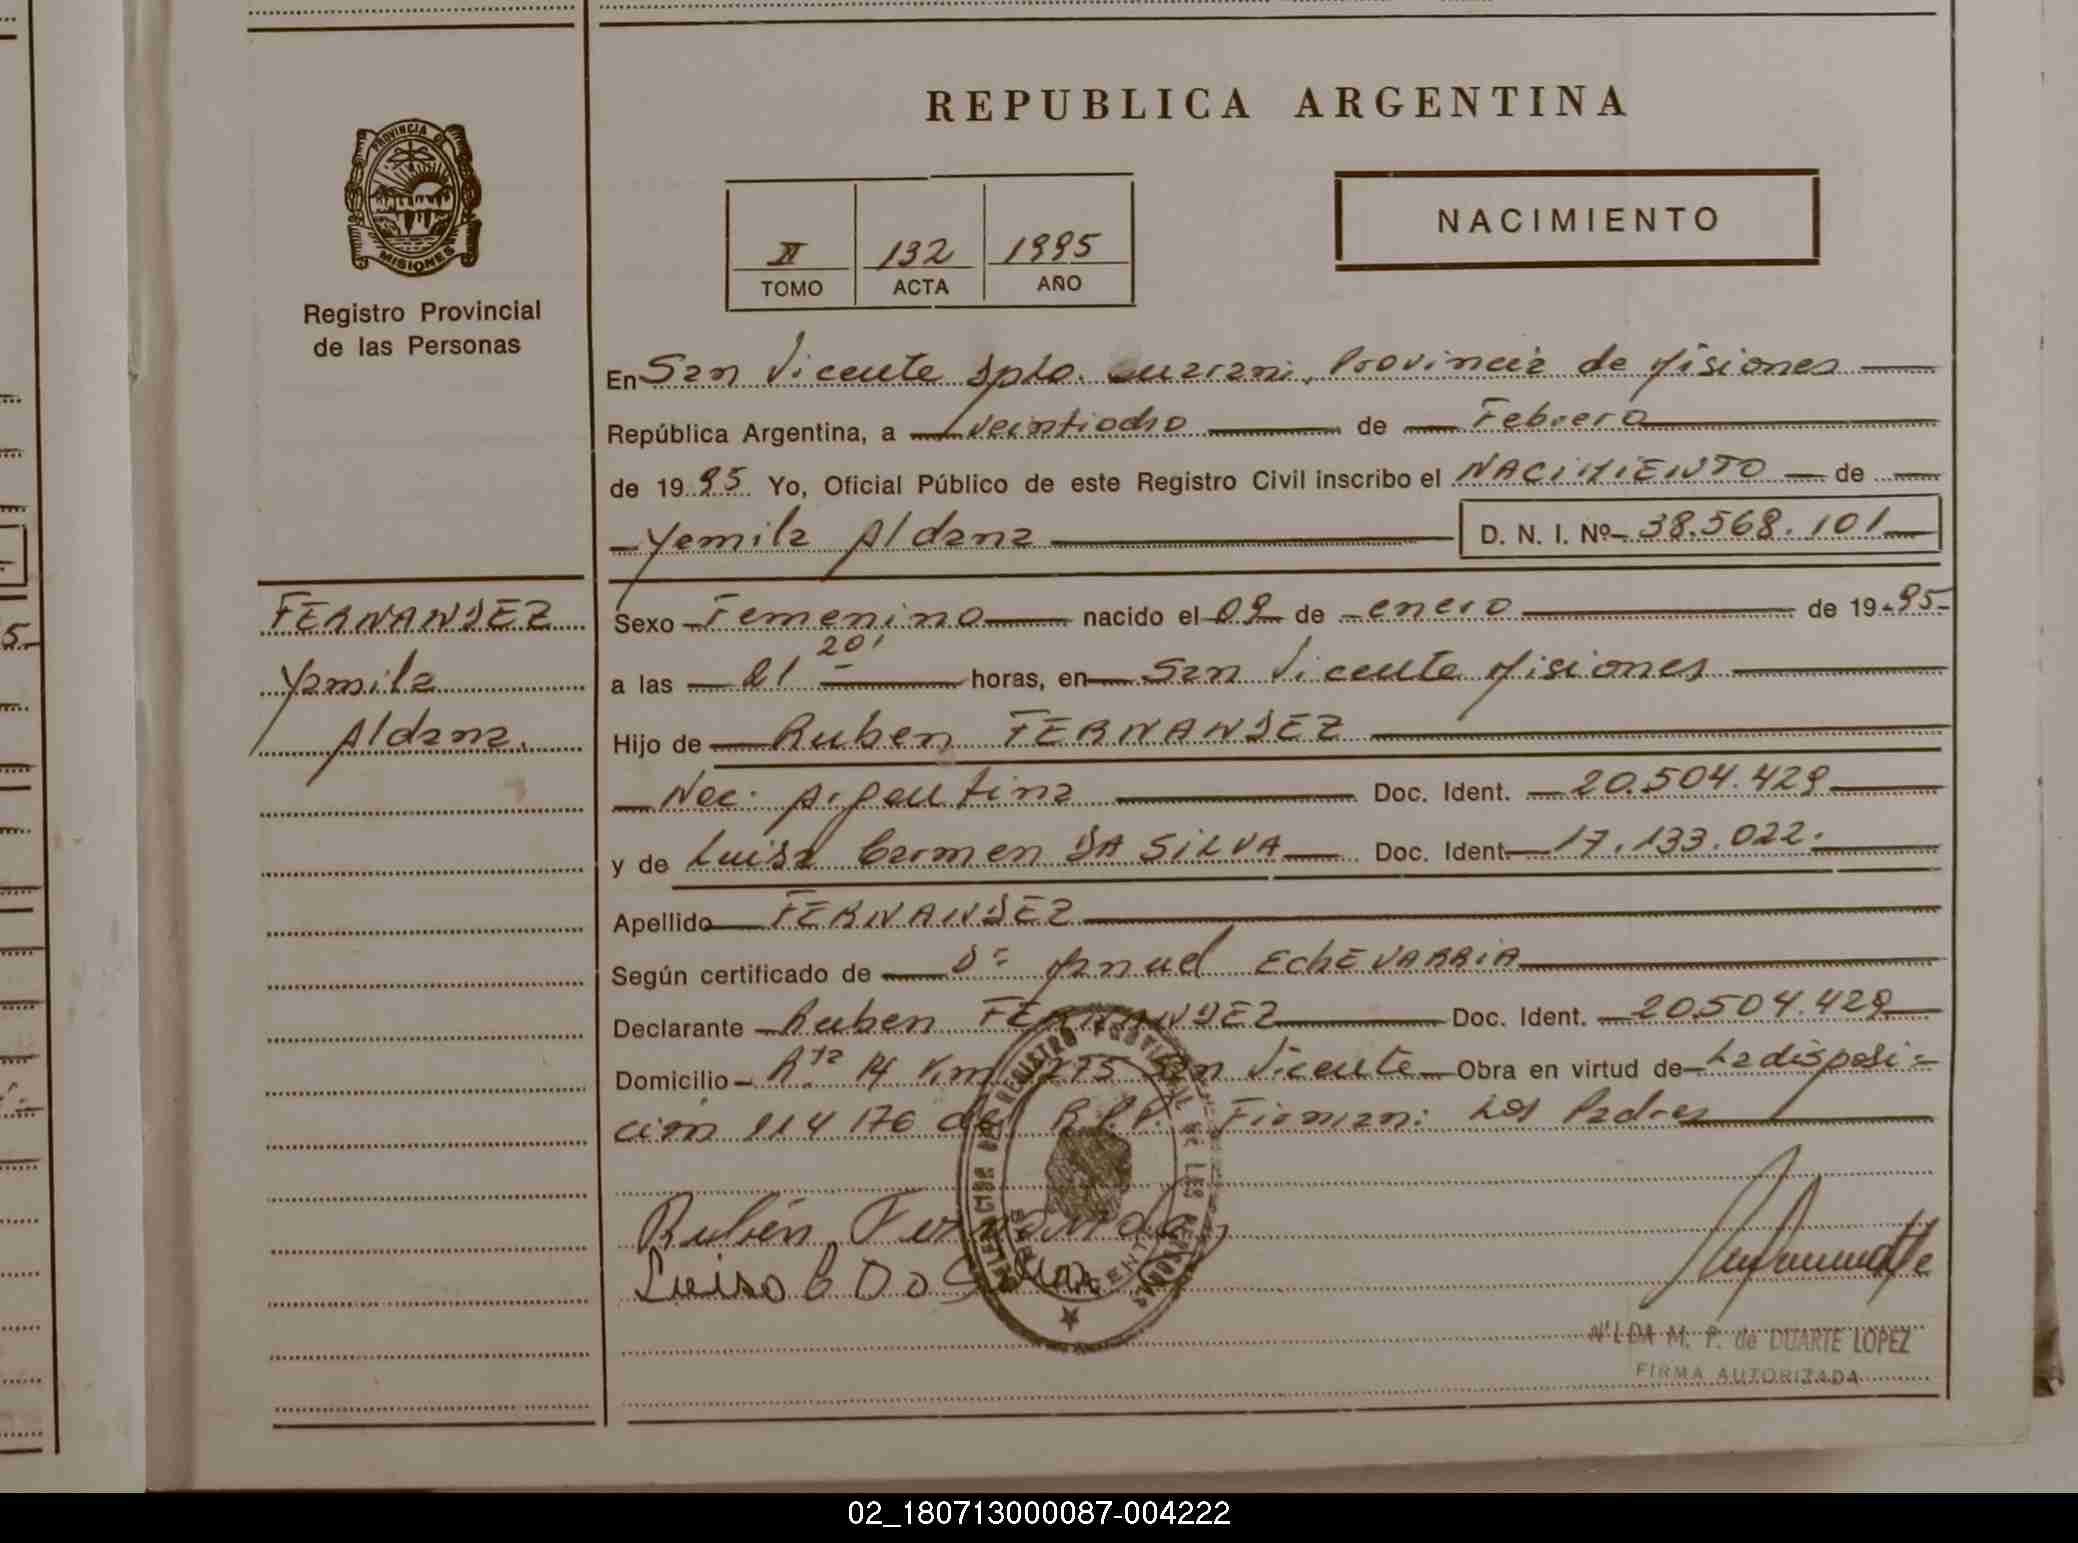 REPUBLICA ARGENTINA
PROVINCIA DE
MISIONES
Registro Provincial
de las Personas
NACIMIENTO
II 132 1995
TOMO ACTA AÑO
En San Vicente Dpto. Guarani, Provincia de Misiones
República Argentina, a veintiocho de Febrero
de 1995 Yo, Oficial Público de este Registro Civil inscribo el NACIMIENTO de
Yamila Aldana D. N. I. Nº 38.568.101
FERNANDEZ
Yamila
Aldana.
Sexo Femenino nacido el 09 de enero de 1995
a las 21 20' horas, en San Vicente Misiones
Hijo de Ruben FERNANDEZ
Nac. Argentina Doc. Ident. 20.504.429
y de Luisa Carmen DA SILVA Doc. Ident. 17.133.022.
Apellido FERNANDEZ
Según certificado de Dr Manuel EchEVARRIA
Declarante Ruben FERNANDEZ Doc. Ident. 20504.429
Domicilio Rta 14 Km 1275 San Vicente Obra en virtud de La disposi-
ción 114 176 del R.P.P. Firman: Los Padres
Rubén Fernandez
Luisa C Da Silva
NILDA M. P. de DUARTE LOPEZ
FIRMA AUTORIZADA
02_180713000087-004222